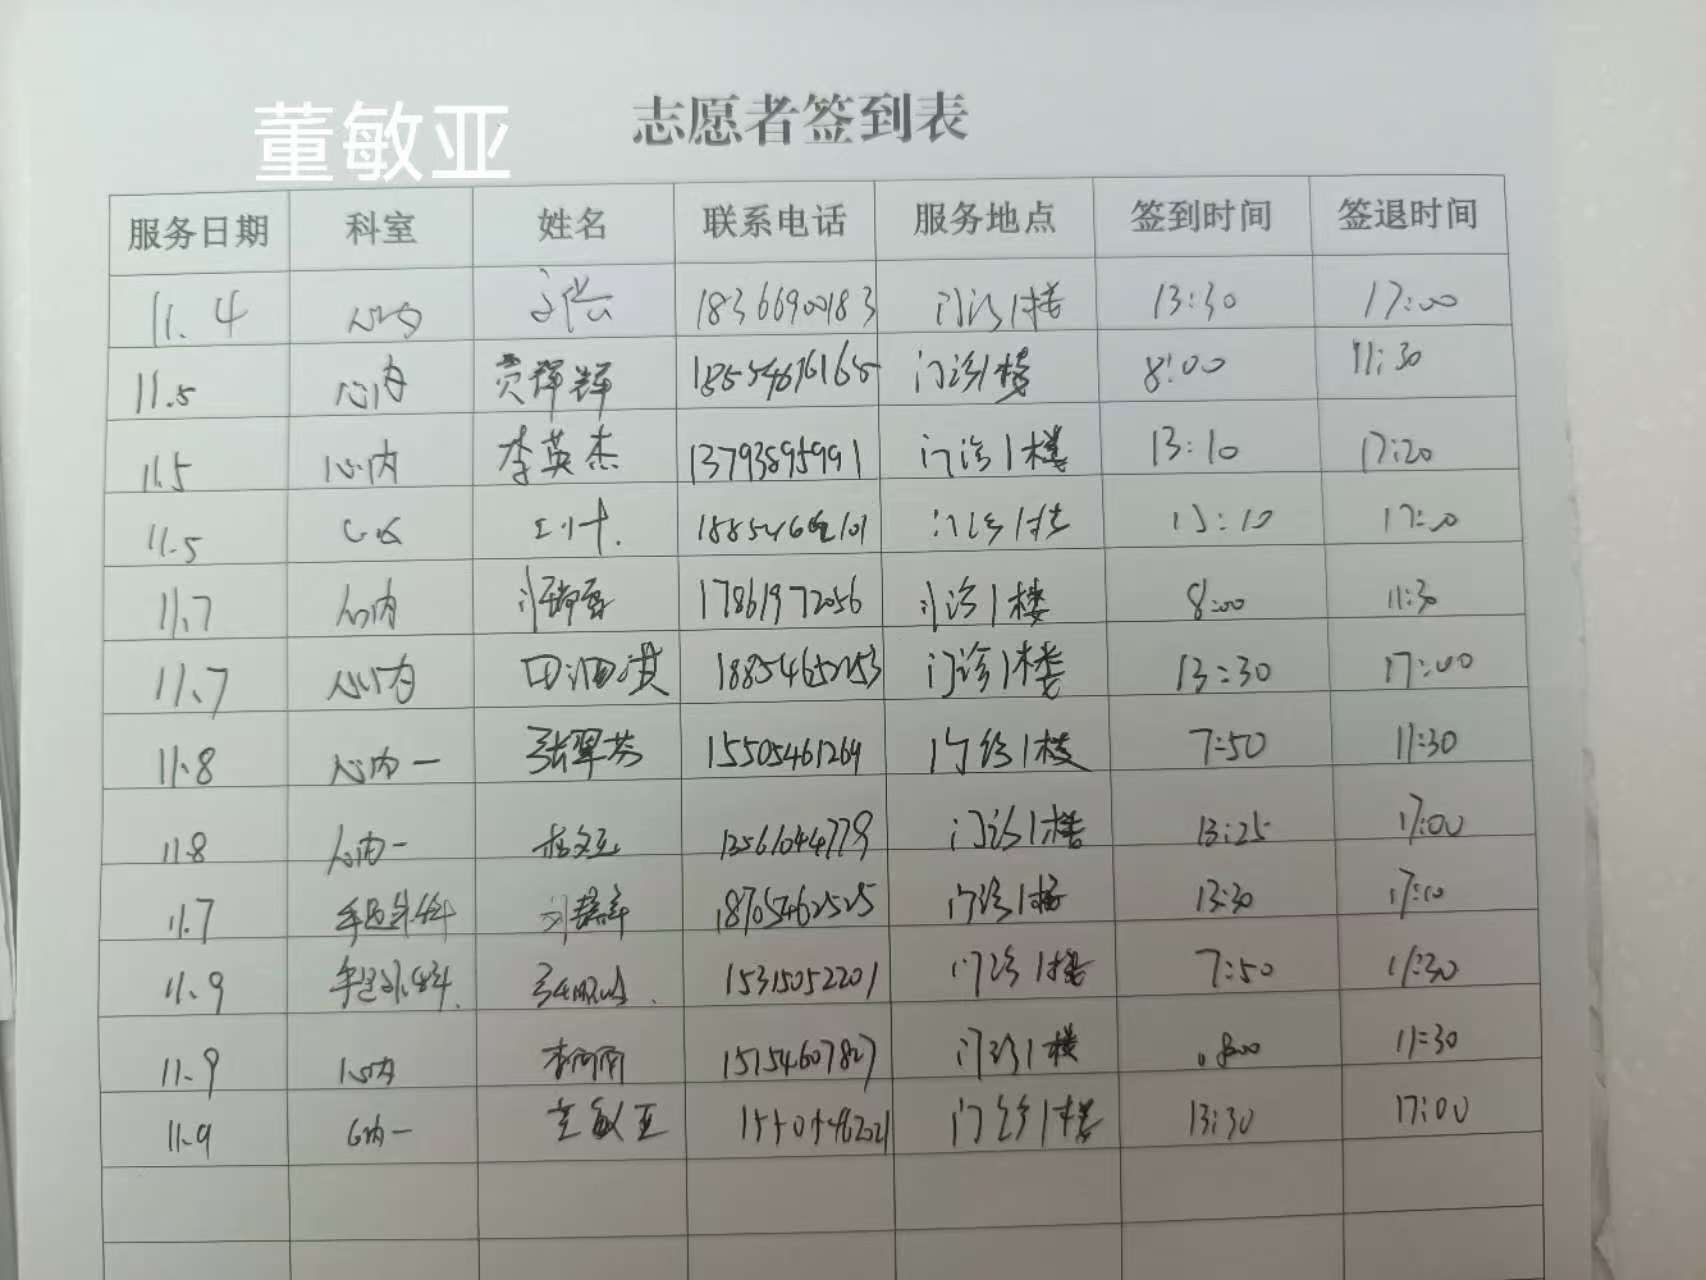 董敏亚
志愿者签到表
服务日期 科室 姓名 联系电话 服务地点 签到时间 签退时间
11.4 心内 18366900183 门诊1楼 13:30 17:00
11.5 心内 黄辉辉 门诊1楼 8:00 11:30
11.5 心内 李英杰 13793895991 门诊1楼 13:10 17:20
11.5 门诊1楼
11.7 心内 17861972056 门诊1楼 8:00 11:30
11.7 心内 18854652253 门诊1楼 13:30 17:00
11.8 心内一 张翠芬 15505461269 门诊1楼 7:50 11:30
11.8 心内一 13561044779 门诊1楼 13:25 17:00
11.7 手足外科 18705462525 门诊1楼 13:30 17:10
11.9 手足外科 15315052201 门诊1楼 7:50 11:30
11.9 心内 15154607827 门诊1楼 8:00 11:30
11.9 心内一 董敏亚 门诊1楼 13:30 17:00